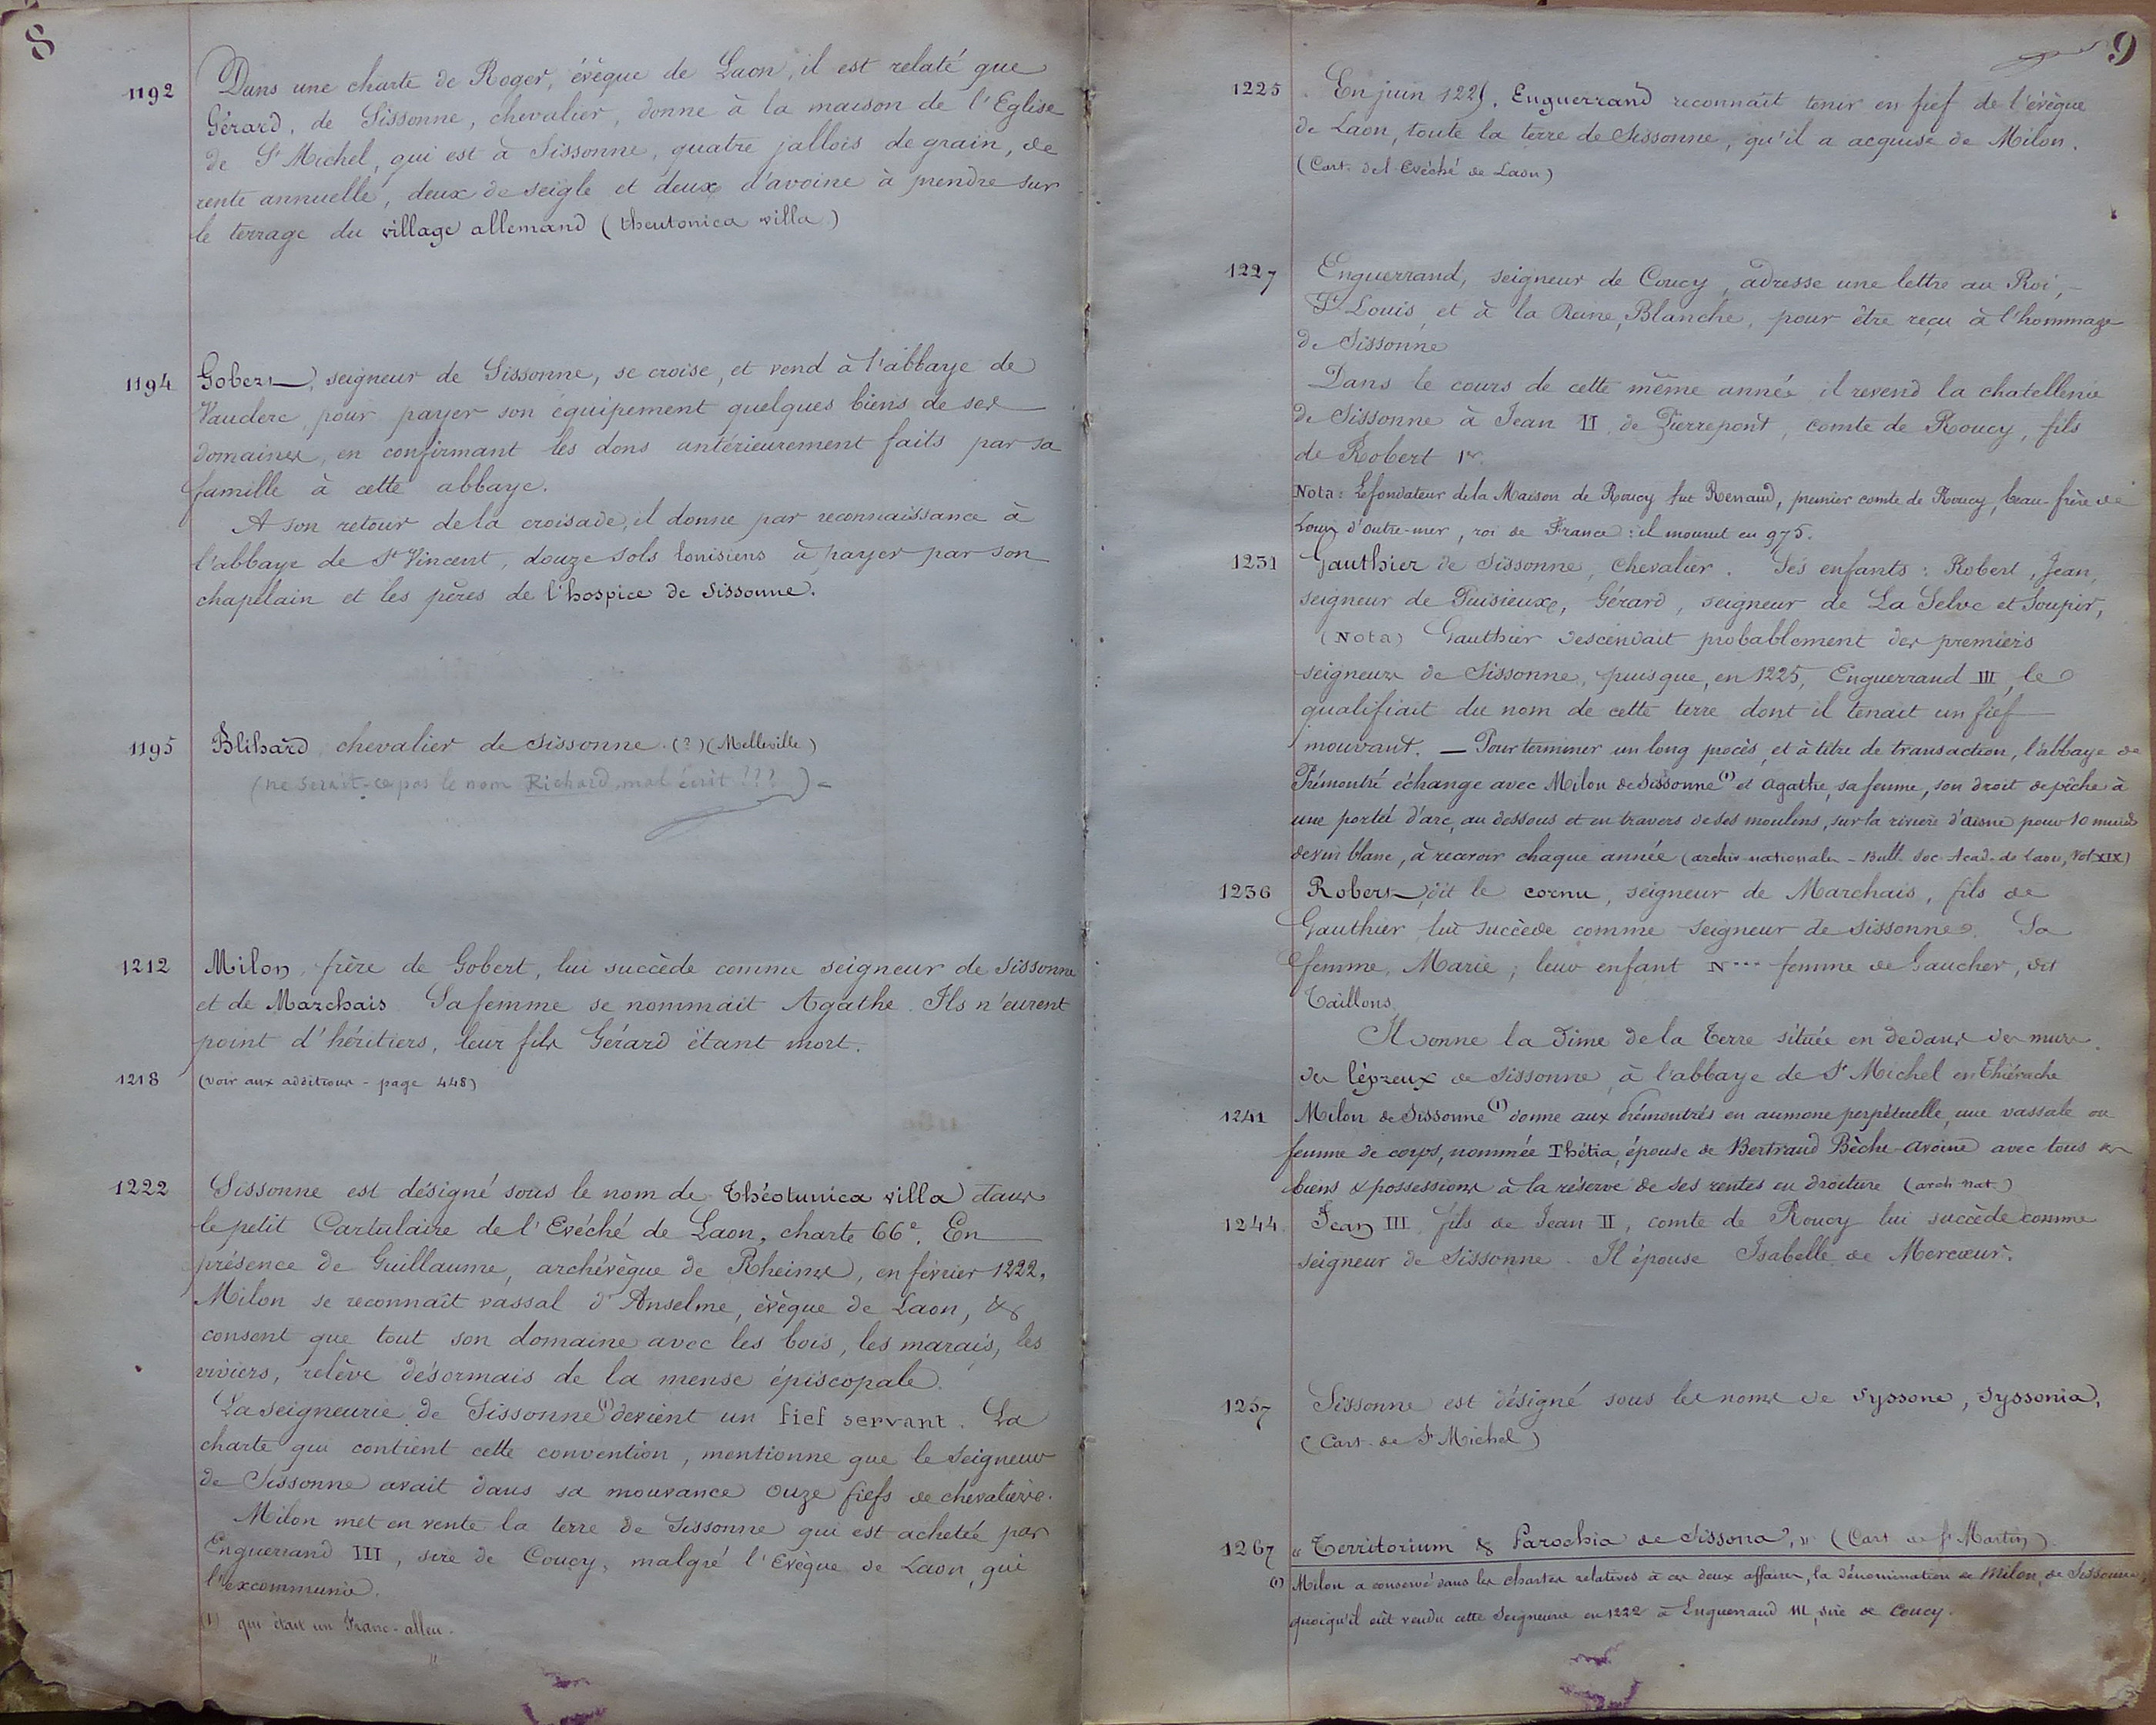 8
1192 Dans une charte de Roger, évêque de Laon, il est relaté que
Gérard, de Sissonne, chevalier, donne à la maison de l'Eglise
de St Michel, qui est à Sissonne, quatre jallois de grain, de
rente annuelle, deux de seigle et deux d'avoine à prendre sur
le terrage du village allemand (theutonica villa)
1194 Gobert, seigneur de Sissonne, se croise, et vend à l'abbaye de
Vauclerc, pour payer son équipement quelques biens de ses
domaines, en confirmant les dons antérieurement faits par sa
famille à cette abbaye.
A son retour de la croisade, il donne par reconnaissance à
l'abbaye de St Vincent, douze sols lonisiens à payer par son
chapelain et les pères de l'hospice de Sissonne.
1195 Blihard chevalier de Sissonne. (?) (Melleville)
(ne serait-ce pas le nom Richard, mal écrit !??) -
1212 Milon, frère de Gobert, lui succède comme seigneur de Sissonne
et de Marchais. Sa femme se nommait Agathe. Ils n'eurent
point d'héritiers, leur fils Gérard étant mort.
1218 (voir aux additions - page 448)
1222 Sissonne est désigné sous le nom de Théotunica villa dans
le petit Cartulaire de l'Evéché de Laon, charte 66e. En
présence de Guillaume, archévèque de Rheims, en février 1222,
Milon se reconnaît vassal d'Anselme, évèque de Laon, &
consent que tout son domaine avec les bois, les marais, les
viviers, relève désormais de la mense épiscopale.
La seigneurie de Sissonne (1) devient un fief servant. La
charte qui contient cette convention, mentionne que le seigneur
de Sissonne avait dans sa mouvance onze fiefs de chevaliers.
Milon met en vente la terre de Sissonne qui est achetée par
Enguerrand III, sire de Coucy, malgré l'Evèque de Laon, qui
l'excommunie.
(1) qui était un Franc-alleu.
9
1225 En juin 1225, Enguerrand reconnaît tenir en fief de l'évèque
de Laon, toute la terre de Sissonne, qu'il a acquise de Milon.
(Cart. de l'Evéché de Laon)
1227 Enguerrand, seigneur de Coucy, adresse une lettre au Roi,
St Louis, et à la Reine, Blanche, pour être reçu à l'hommage
de Sissonne
Dans le cours de cette même année il revend la chatellenie
de Sissonne à Jean II, de Pierrepont, comte de Roucy, fils
de Robert 1er.
Nota: Le fondateur de la Maison de Roucy fut Renaud, premier comte de Roucy, beau-frère de
Louis d'Outre-mer, roi de France: il mourut en 975.
1231 Gauthier de Sissonne, chevalier. Ses enfants: Robert, Jean,
seigneur de Puisieux, Gérard, seigneur de La Selve et Soupir,
(Nota) Gauthier descendait probablement des premiers
seigneurs de Sissonne, puisque, en 1225, Enguerrand III, le
qualifiait du nom de cette terre dont il tenait un fief
mouvant. — Pour terminer un long procès, et à titre de transaction, l'abbaye de
Prémontré échange avec Milon de Sissonne (1) et Agathe, sa femme, son droit de pêche à
une portée d'arc, au dessous et en travers de ses moulins, sur la rivière d'Aisne pour 10 muids
de vin blanc, à recevoir chaque année (archiv. nationales - Bull. Soc. Acad. de Laon, Vol XIX)
1236 Robert, dit le cornu, seigneur de Marchais, fils de
Gauthier, lui succède comme seigneur de Sissonne. Sa
femme, Marie; leur enfant N... femme de Gaucher, dit
Taillons.
Il donne la dîme de la Terre située en dedans des murs
des lépreux de Sissonne, à l'abbaye de St Michel en Thiérache
1241 Milon de Sissonne (1) donne aux Prémontrés en aumone perpétuelle, une vassale ou
femme de corps, nommée Thétia, épouse de Bertrand Bèche-Avoine avec tous ses
biens & possessions à la réserve de ses rentes en droiture (arch. nat.)
1244 Jean III, fils de Jean II, comte de Roucy lui succède comme
seigneur de Sissonne. Il épouse Isabelle de Mercœur.
1257 Sissonne est désigné sous les noms de Syssone, Syssonia,
(Cart. de St Michel)
1267 « Territorium & Parochia de Sissona, » (Cart. de St Martin)
(1) Milon a conservé dans les chartes relatives à ces deux affaires, la dénomination de Milon, de Sissonne,
quoiqu'il eût vendu cette Seigneurie en 1222 à Enguerrand III, sire de Coucy.